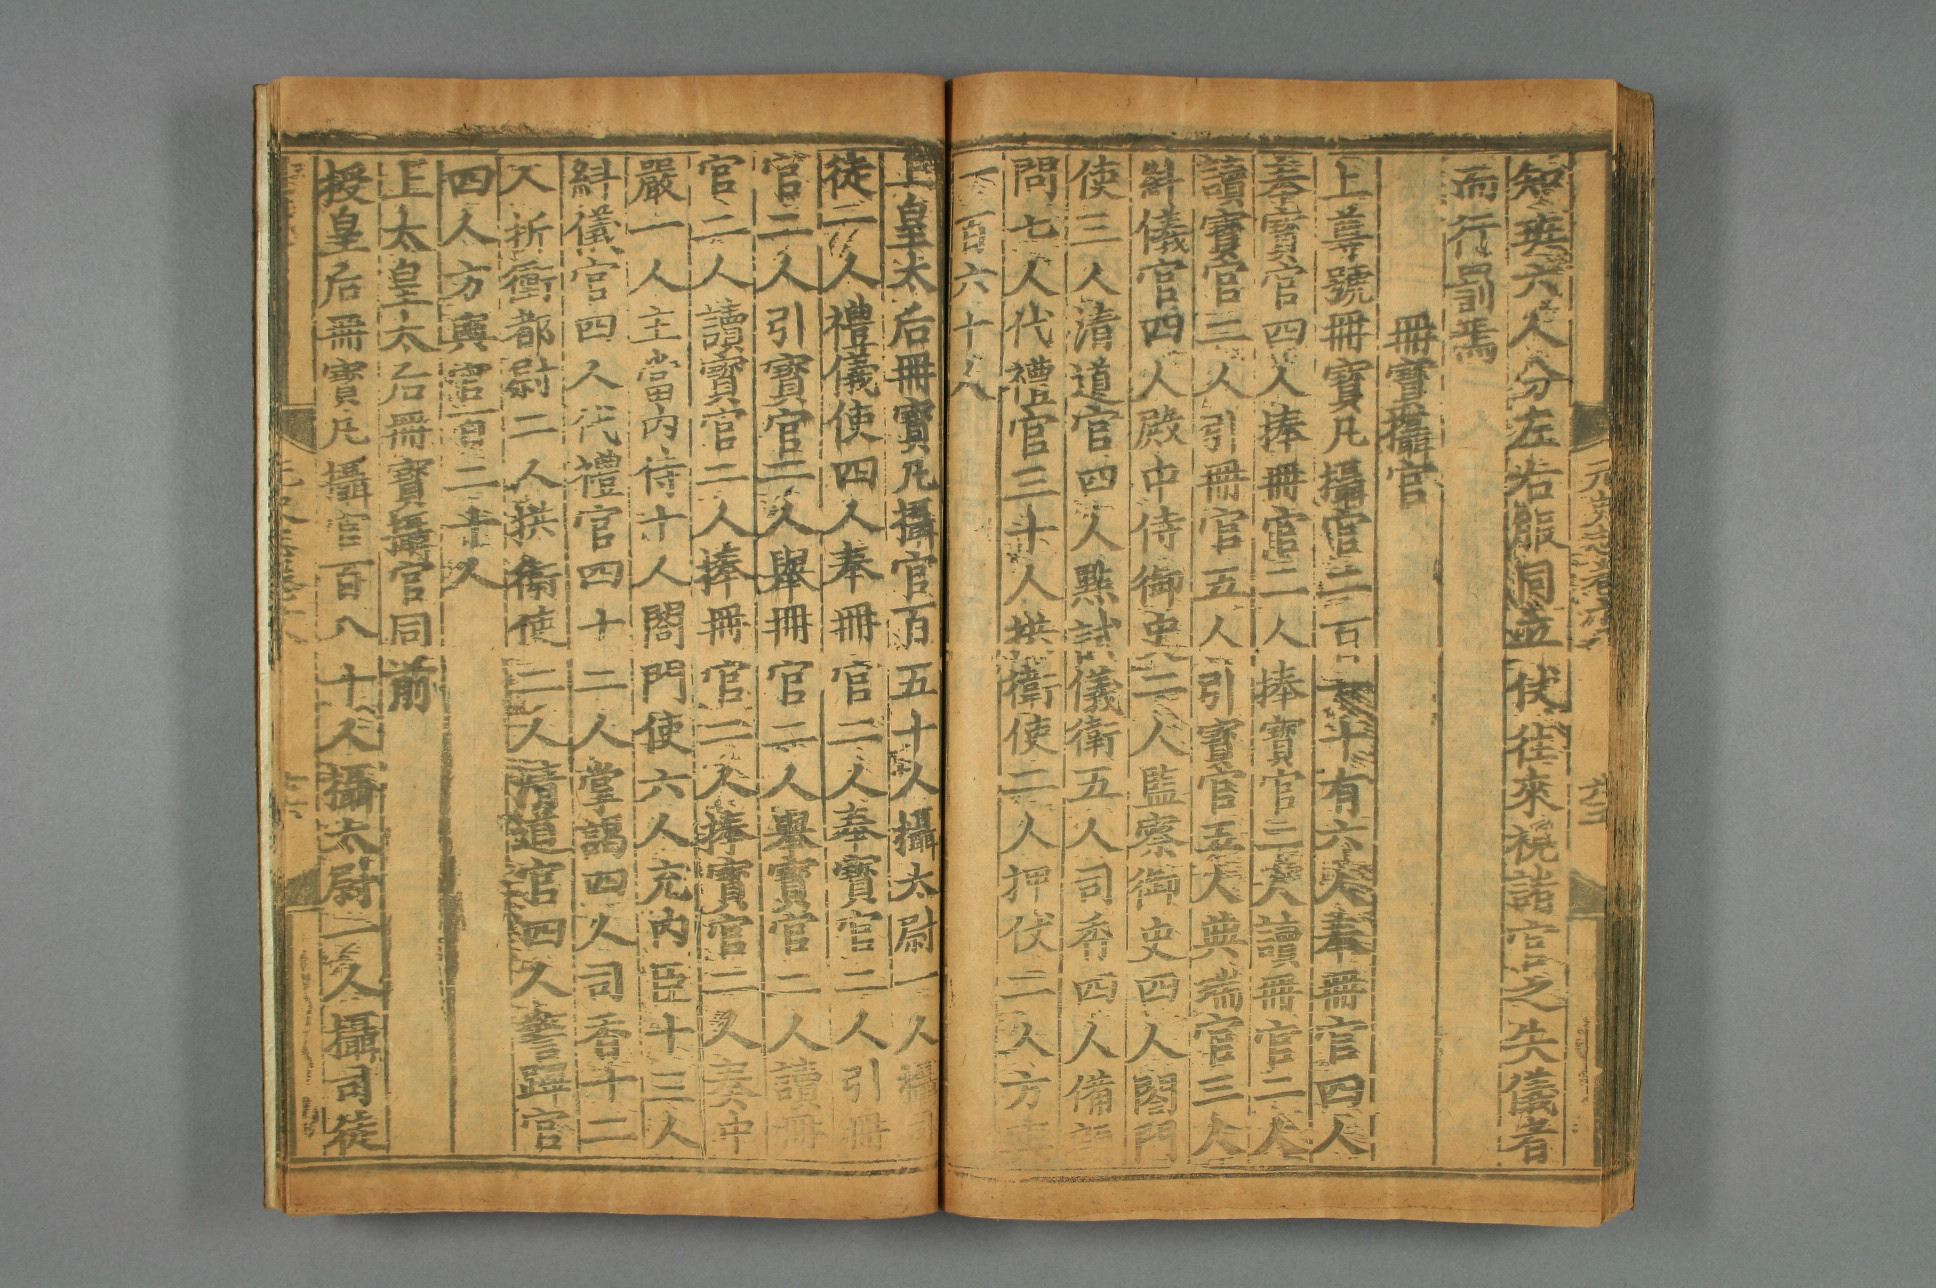 知班六人分左右服同並伏往來視諸官之失儀者
而行罰焉
冊寶攝官
上尊號冊寶凡攝官二百一十有六人奉冊官四人
奉寶官四人捧冊官二人捧寶官二人讀冊官二人
讀寶官二人引冊官五人引寶官五人典瑞官三人
糾儀官四人殿中侍御史二人監察御史四人閤門
使三人清道官四人點試儀衛五人司香四人備顧
問七人代禮官三十人拱衛使二人押仗二人方輿
一百六十人
上皇太后冊寶凡攝官百五十人攝太尉一人攝司
徒二人禮儀使四人奉冊官二人奉寶官二人引冊
官二人引寶官二人舉冊官二人舉寶官二人讀冊
官二人讀寶官二人捧冊官二人捧寶官二人奏中
嚴一人主當內侍十人閤門使六人充內臣十三人
糾儀官四人代禮官四十二人掌謁四人司香十二
人折衝都尉二人拱衛使二人清道官四人警蹕官
四人方輿官百二十人
上太皇太后冊寶攝官同前
授皇后冊寶凡攝官百八十人攝太尉一人攝司徒